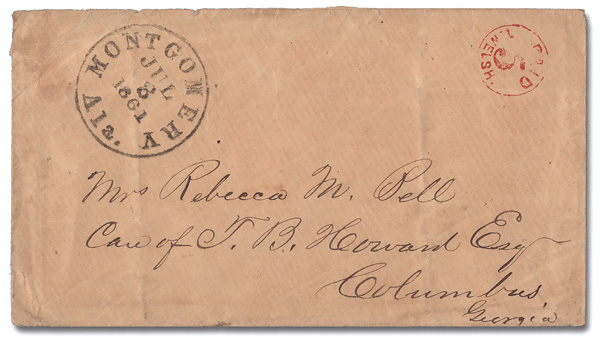 MONTGOMERY Ala.
JUL
8
1861
PAID
5
T. WELSH.
Mrs Rebecca M. Bell
Care of T. B. Howard Esq
Columbus
Georgia